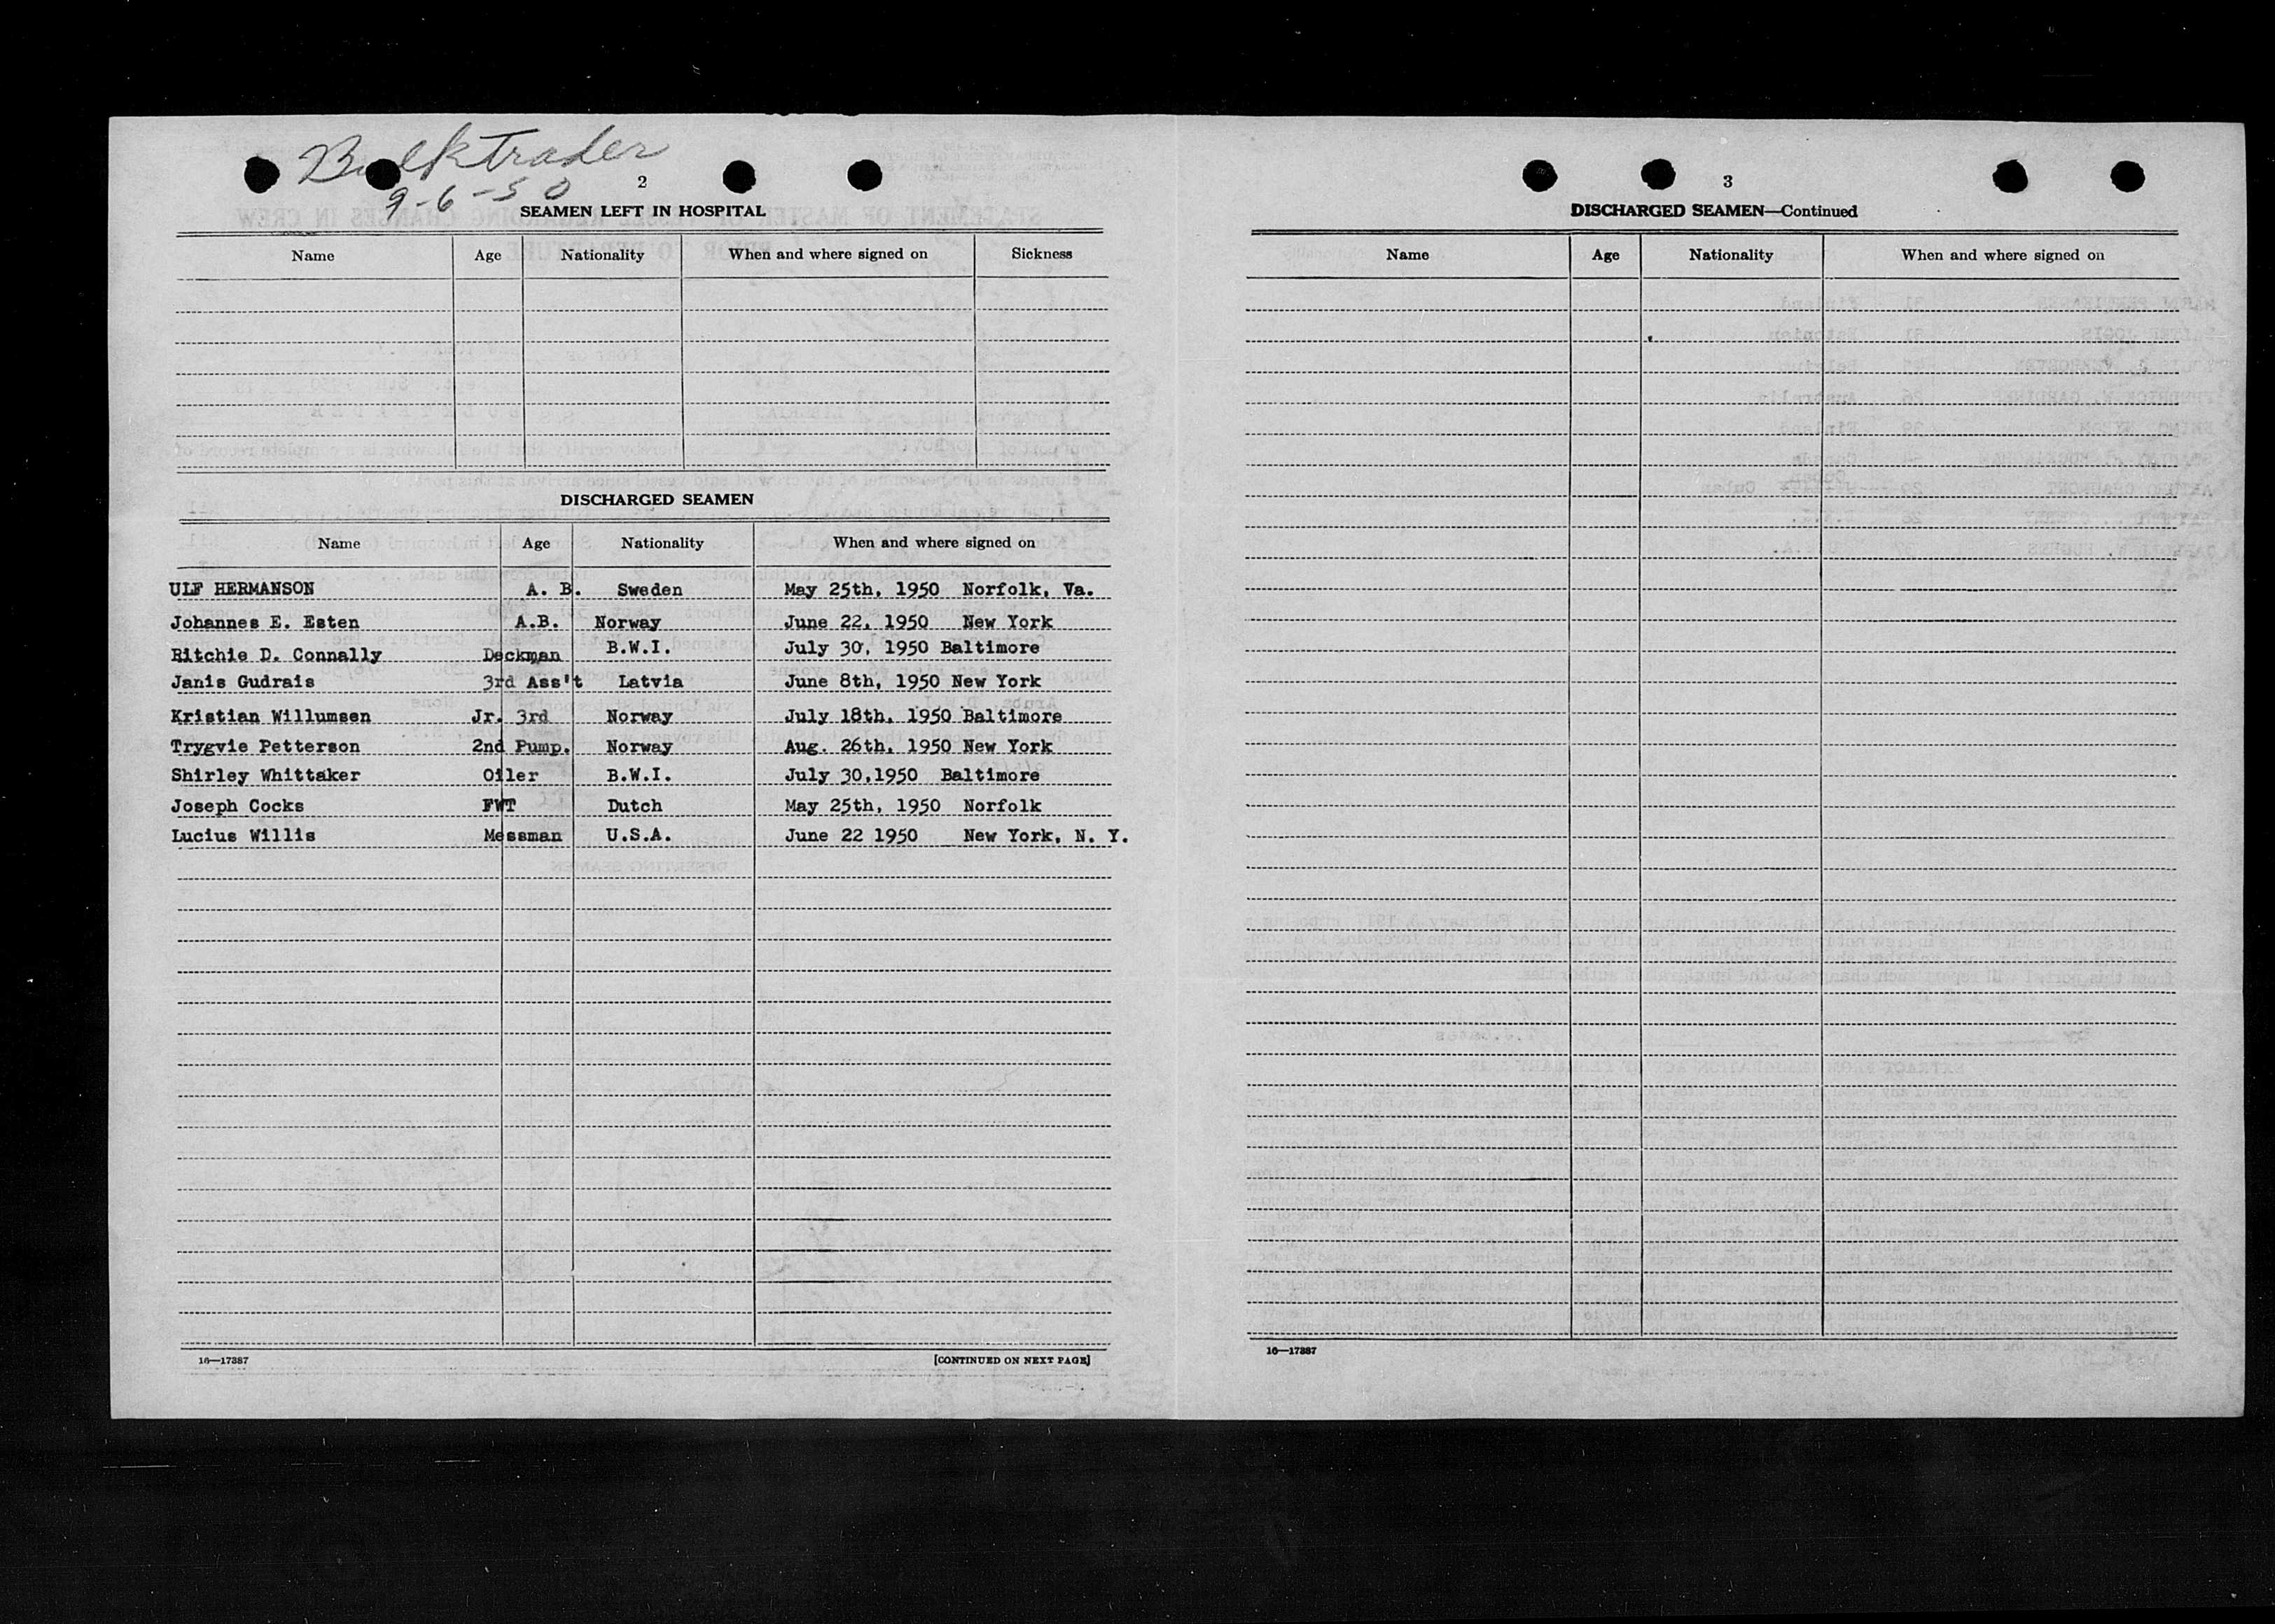 Bulktrader
9-6-50
2
SEAMEN LEFT IN HOSPITAL
Name Age Nationality When and where signed on Sickness
DISCHARGED SEAMEN
Name Age Nationality When and where signed on
ULF HERMANSON A. B. Sweden May 25th, 1950 Norfolk, Va.
Johannes E. Esten A.B. Norway June 22, 1950 New York
Ritchie D. Connally Deckman B.W.I. July 30, 1950 Baltimore
Janis Gudrais 3rd Ass't Latvia June 8th, 1950 New York
Kristian Willumsen Jr. 3rd Norway July 18th, 1950 Baltimore
Trygvie Petterson 2nd Pump. Norway Aug. 26th, 1950 New York
Shirley Whittaker Oiler B.W.I. July 30,1950 Baltimore
Joseph Cocks FWT Dutch May 25th, 1950 Norfolk
Lucius Willis Messman U.S.A. June 22 1950 New York, N. Y.
16—17387
[CONTINUED ON NEXT PAGE]
3
DISCHARGED SEAMEN—Continued
Name Age Nationality When and where signed on
16—17387